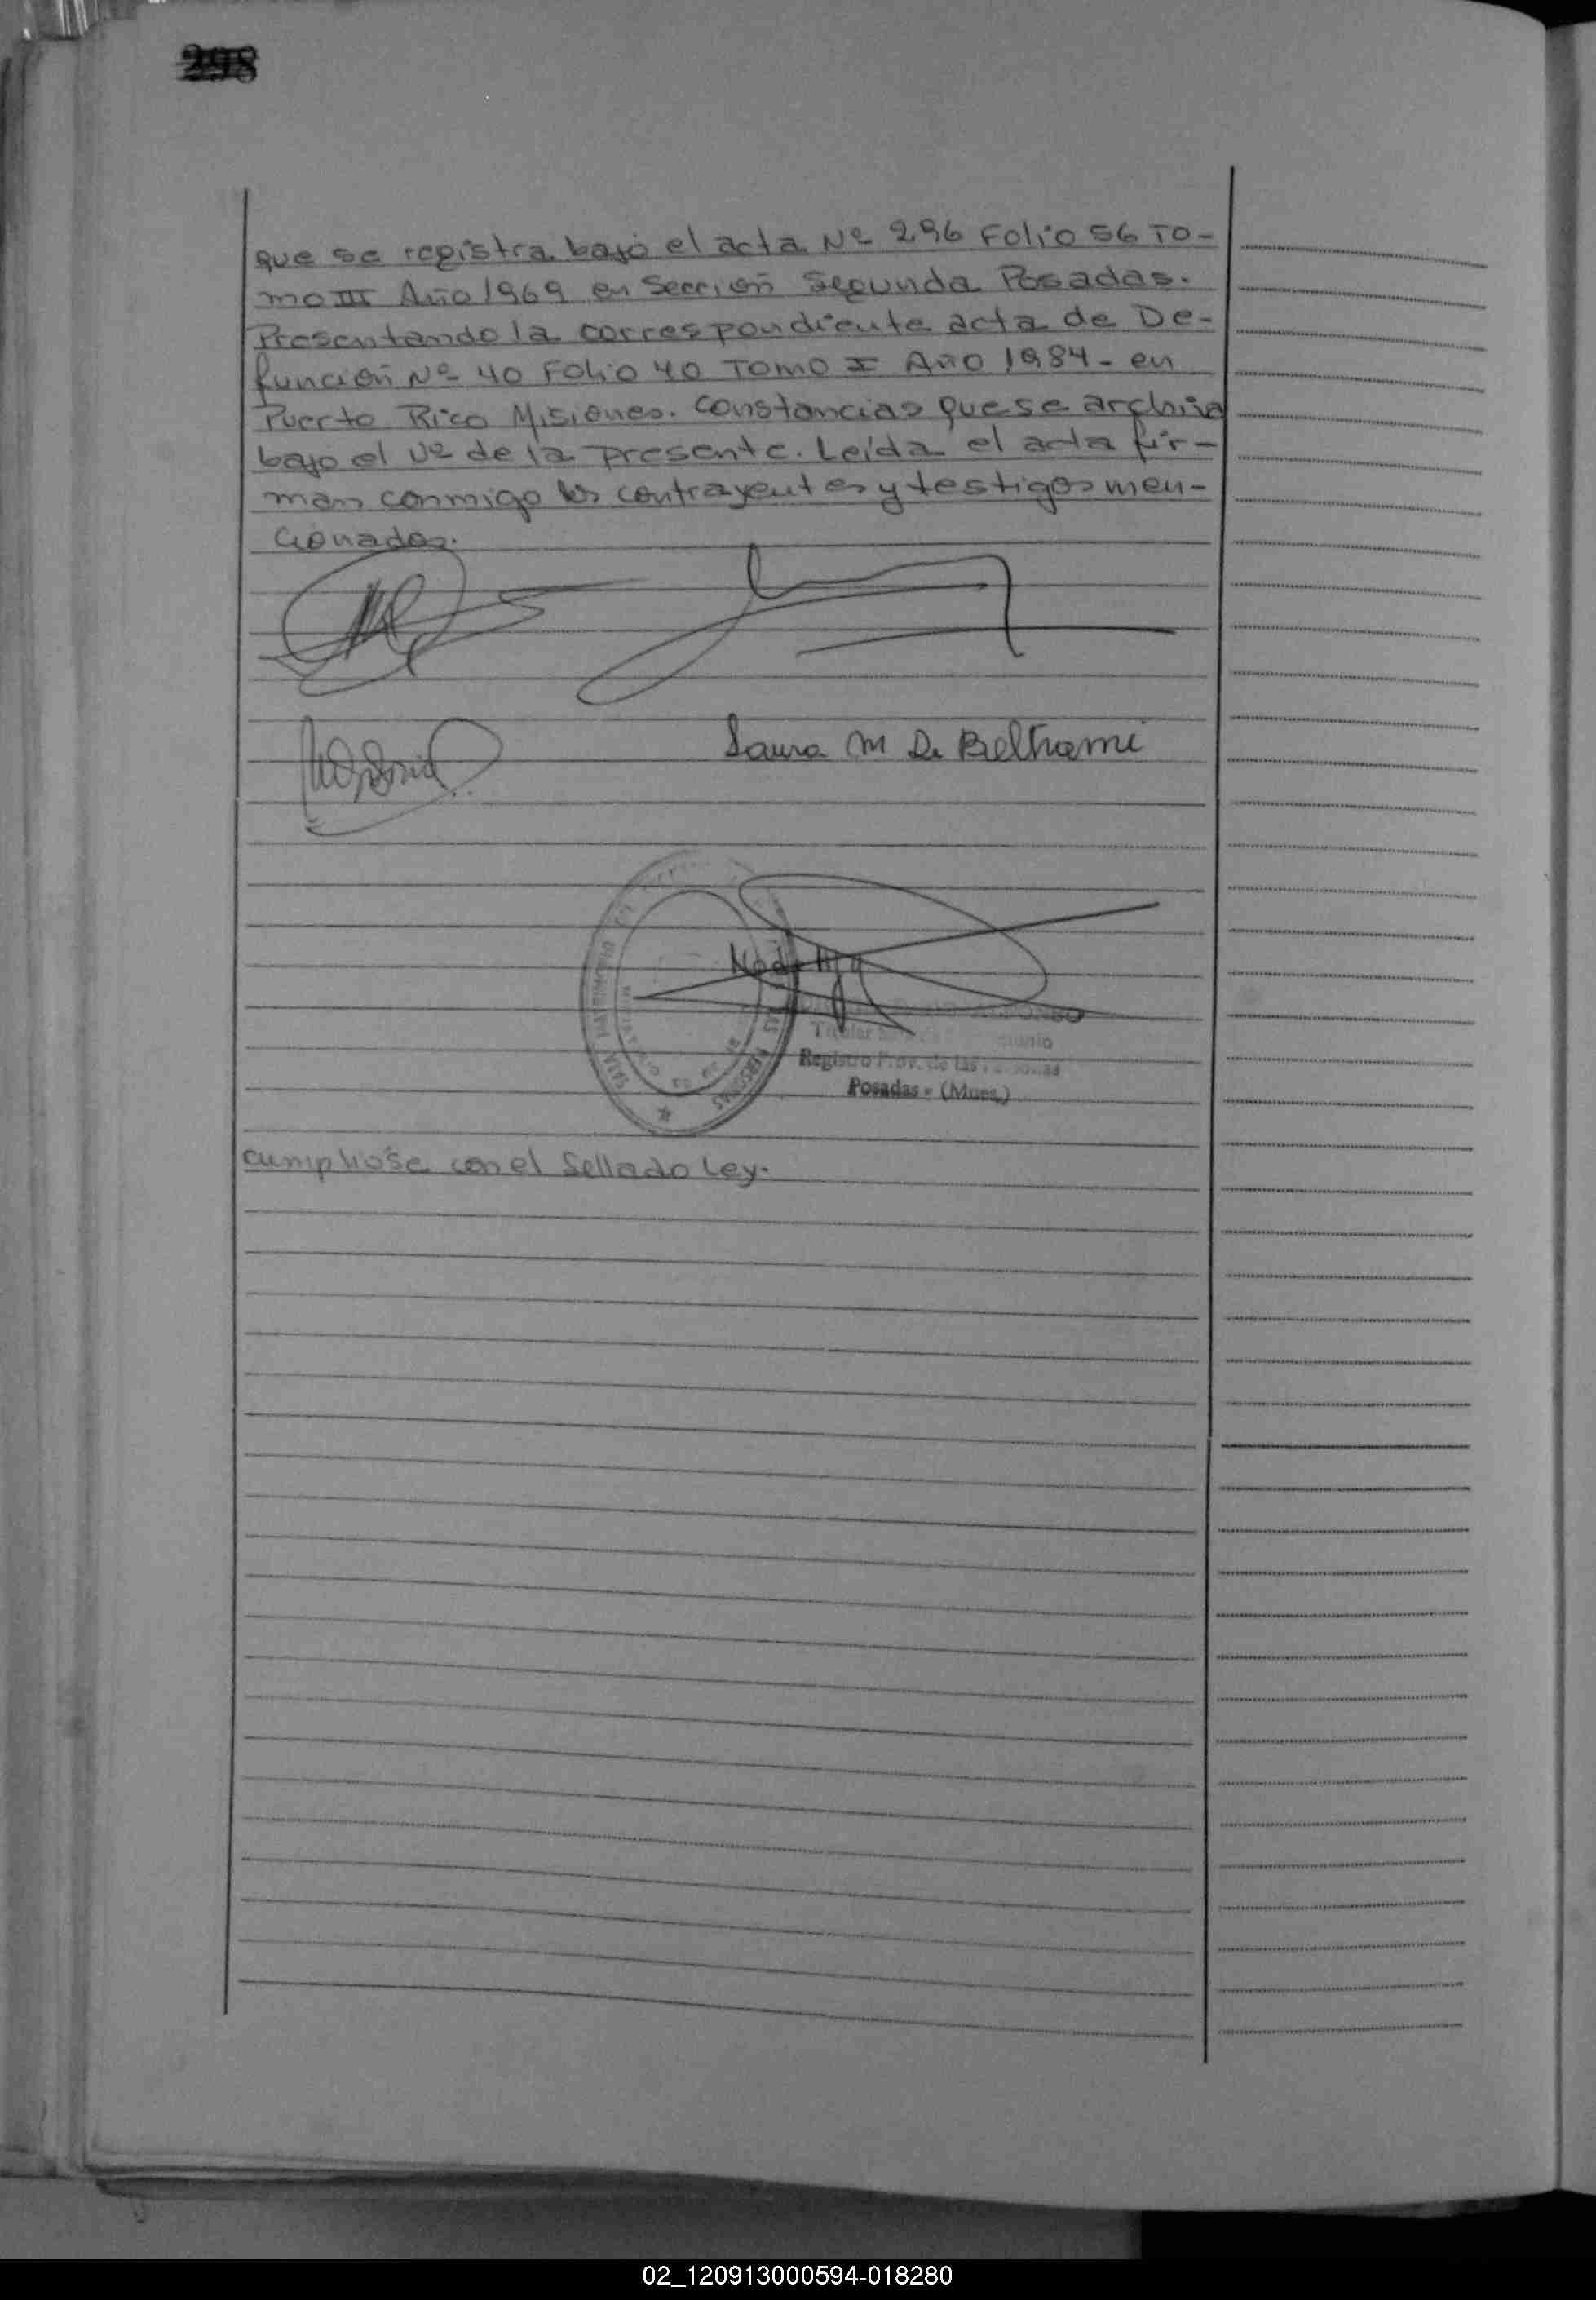 298
que se registra bajo el acta Nº 296 Folio 56 To-
mo III Año 1969 en Sección Segunda Posadas.
Presentando la correspondiente acta de De-
función Nº 40 Folio 40 Tomo I Año 1984- en
Puerto Rico Misiones. Constancias que se archiva
bajo el Nº de la presente. Leída el acta fir-
man conmigo los contrayentes y testigos men-
cionados.
Laura M De Beltrami
SALA MATRIMONIO
PERSONAS
Titular
Registro Prov. de las
Posadas - (Mnes.)
cumpliose con el Sellado Ley.
02_120913000594-018280